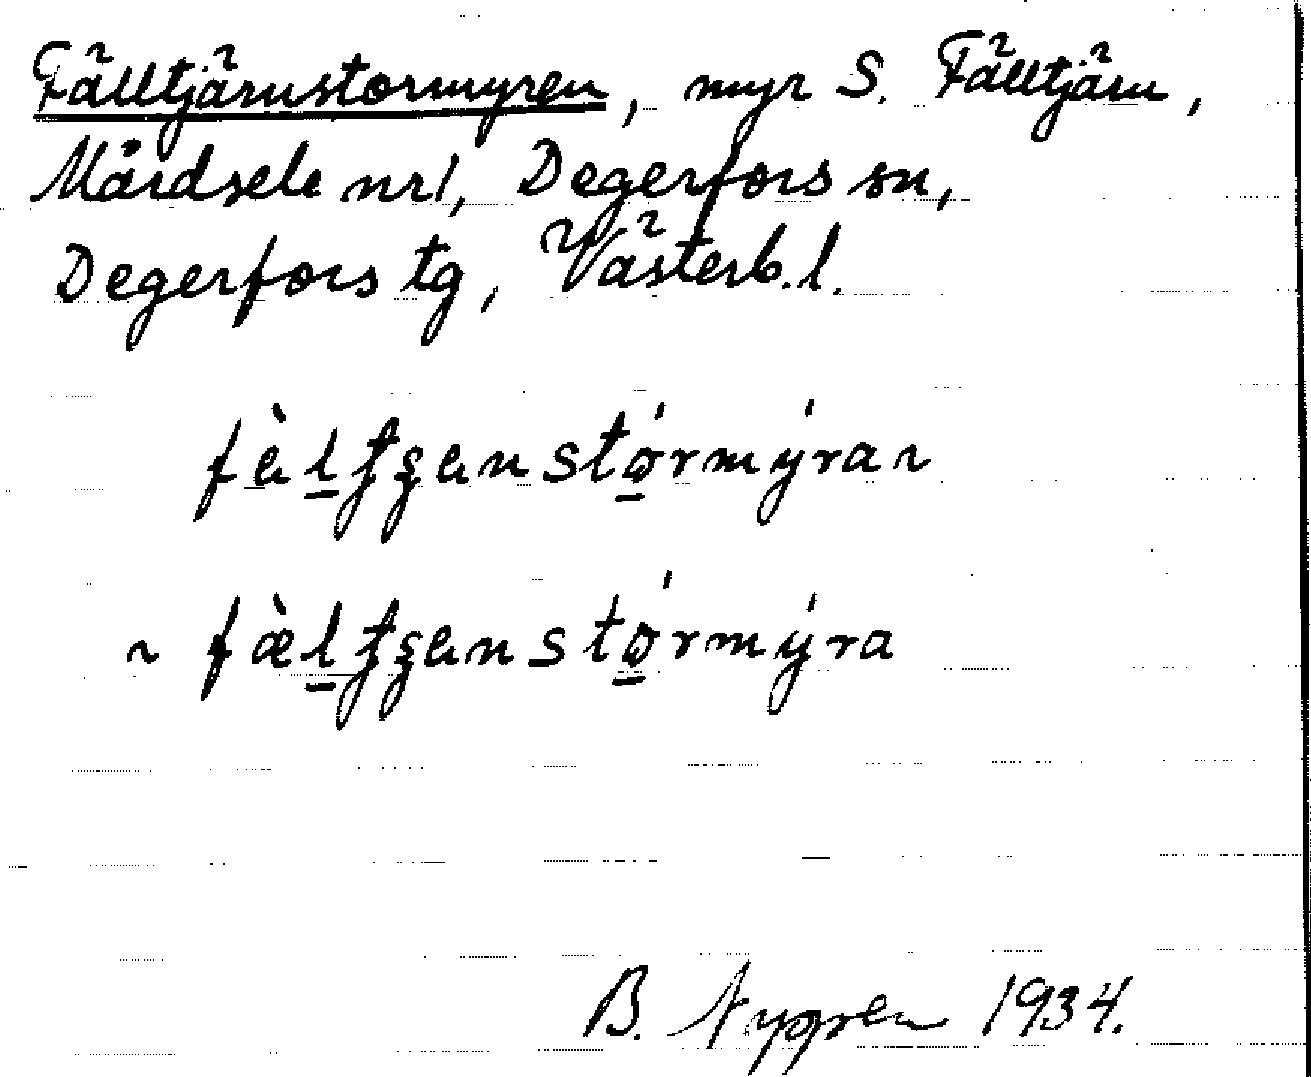 Fälltjärnstormyren, myr S. Fälltjärn,
Mårdsele nr 1, Degerfors sn,
Degerfors tg, Västerb. l.
fàltʂenstórmýran
~ fæ̀ltʂenstórmýra
B. Nygren 1934.